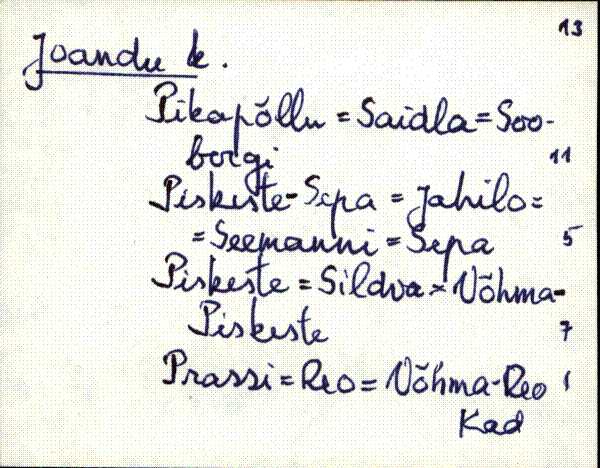 13
Joandu k.
Pikapõllu = Saidla = Soo-
borgi 11
Piskeste-Sepa = Jahilo =
= Seemanni = Sepa 5
Piskeste = Sildva = Võhma-
Piskeste 7
Prassi = Reo = Võhma-Reo 1
Kad